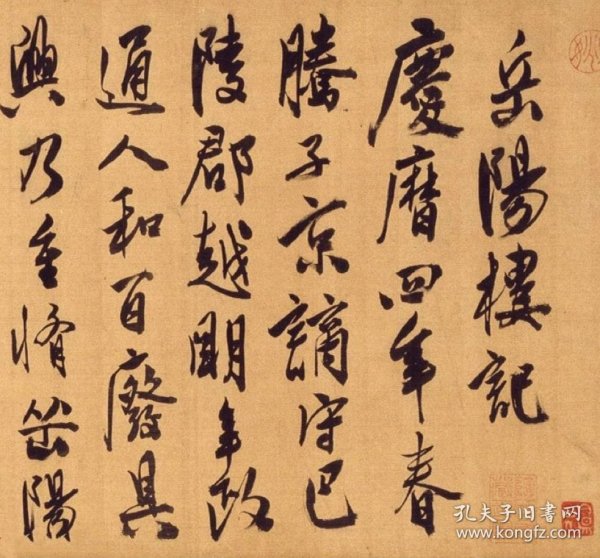 岳陽樓記
慶曆四年春
滕子京謫守巴
陵郡越明年政
通人和百廢具
興乃重脩岳陽
孔夫子旧书网
www.kongfz.com